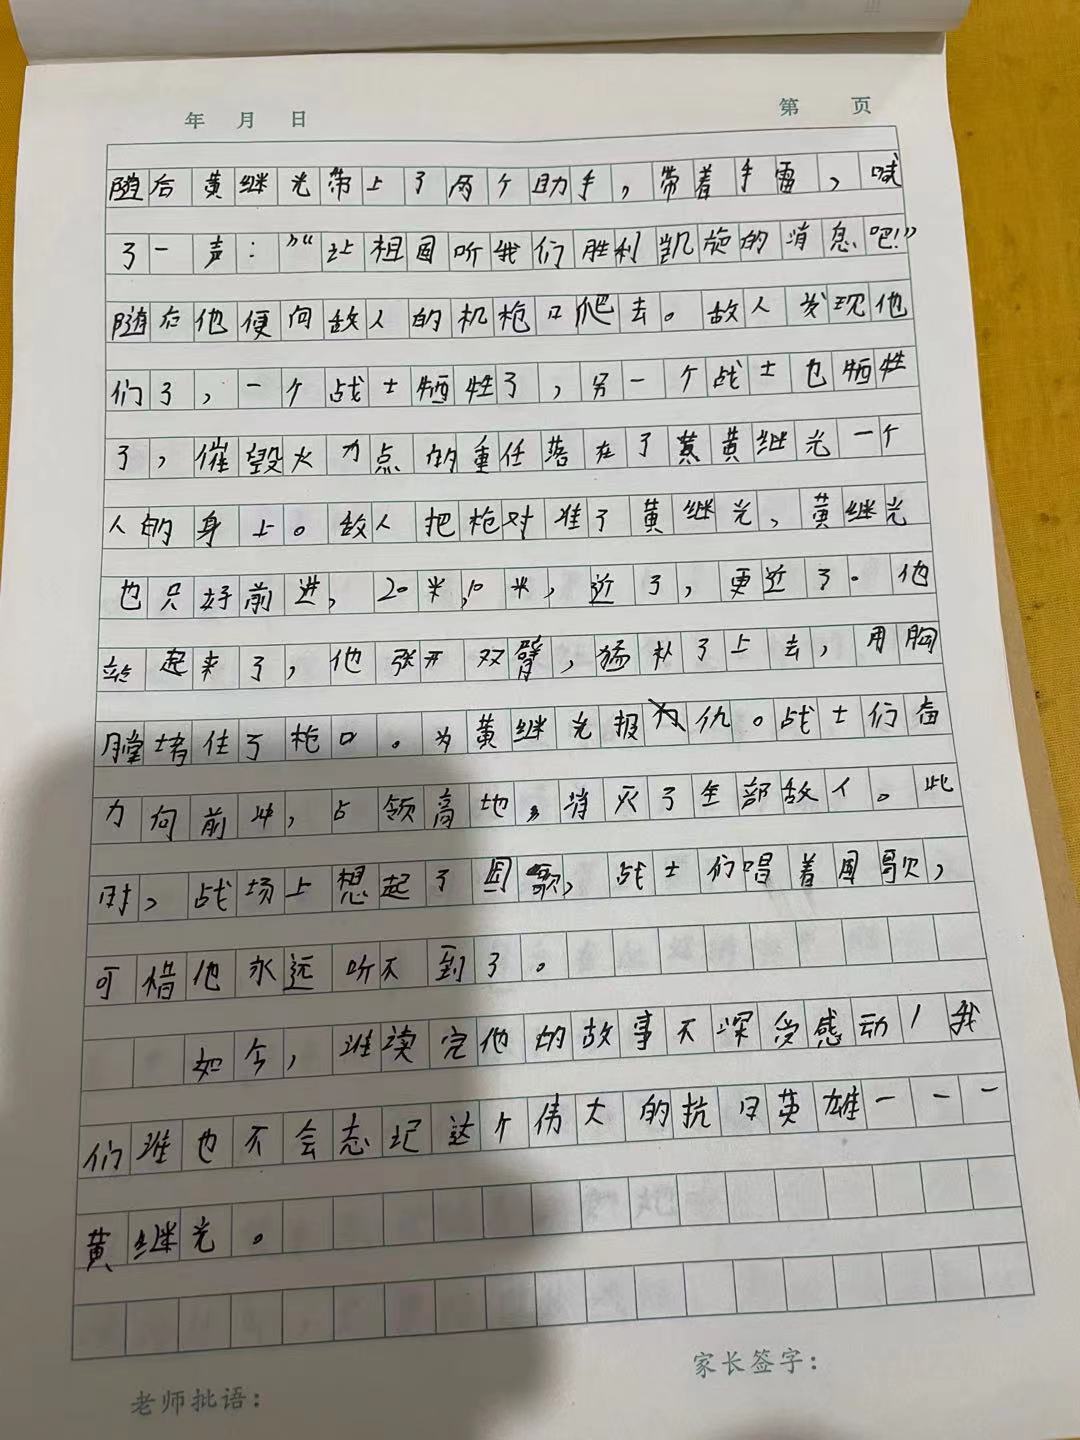 年 月 日 第 页
随后黄继光带上了两个助手，带着手雷，喊
了一声：”“让祖国听我们胜利凯旋的消息吧！”
随后他便向敌人的机枪口爬去。敌人发现他
们了，一个战士牺牲了，另一个战士也牺牲
了，催毁火力点的重任落在了黄黄继光一个
人的身上。敌人把枪对准了黄继光，黄继光
也只好前进，20米，10米，近了，更近了。他
站起来了，他张开双臂，猛扑了上去，用胸
膛堵住了枪口。为黄继光报仇。战士们奋
力向前冲，占领高地，消灭了全部敌人。此
时，战场上想起了国歌，战士们唱着国歌，
可惜他永远听不到了。
如今，谁读完他的故事不深受感动！我
们谁也不会忘记这个伟大的抗日英雄一一一
黄继光。
家长签字：
老师批语：